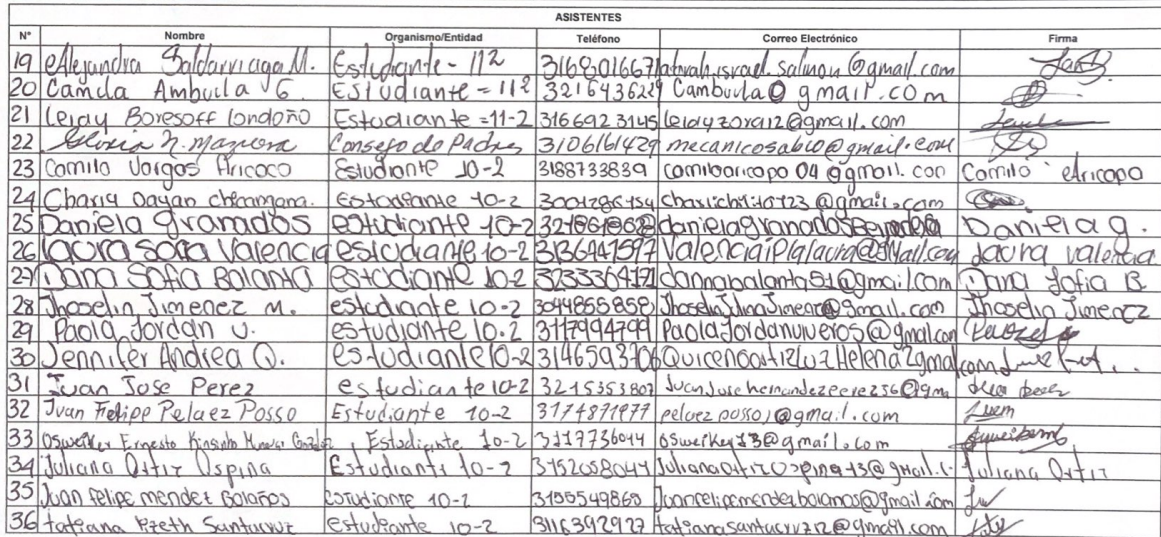 ASISTENTES
N° Nombre Organismo/Entidad Teléfono Correo Electrónico Firma
19 Alejandra Saldarriaga M. Estudiante - 11² 3168016671 @gmail.com
20 Camila Ambuila G. Estudiante = 11² 3216436229 Cambuila@gmail.com
21 Leidy Boresoff Londoño Estudiante =11-2 3166923145 leidyzora12@gmail.com
22 Gloria N. Consejo de Padres 3106161429 mecanicosabio@gmail.com
23 Camilo Vargas Aricapo Estudiante 10-2 3188733839 camiloaricapo04@gmail.con Camilo Aricapo
24 Charid Dayan chicangana. Estudiante 10-2 @gmail.com
25 Daniela granados estudiante 10-2 Daniela g.
26 laura sofia Valencia estudiante 10-2 3136941597 laura valencia
27 Dana Sofia Balanta estudiante 10-2 3233364121 dannabalanta51@gmail.com Dana Sofia B.
28 Jhoselin Jimenez M. estudiante 10-2 3044865858 Jhoselin Jimenez
29 Paola Jordan v. estudiante 10-2 3117994799 PaolaJordanviveros@gmail.com
30 Jennifer Andrea Q. estudiante 10-2 3146593706
31 Juan Jose Perez estudiante 10-2 3215353807
32 Juan Felipe Pelaez Posso Estudiante 10-2 3174871977 pelaezposso1@gmail.com
33 Ernesto Estudiante 10-2 3117736044 @gmail.com
34 Juliana Ortiz Ospina Estudiante 10-2 3152058044 Juliana Ortiz
35 Juan felipe mendez Bolaños estudiante 10-2 3155549865 Juanfelipemendezbolanos@gmail.com
36 tatiana lizeth Santacruz estudiante 10-2 3116392927 tatianasantacruz12@gmail.com